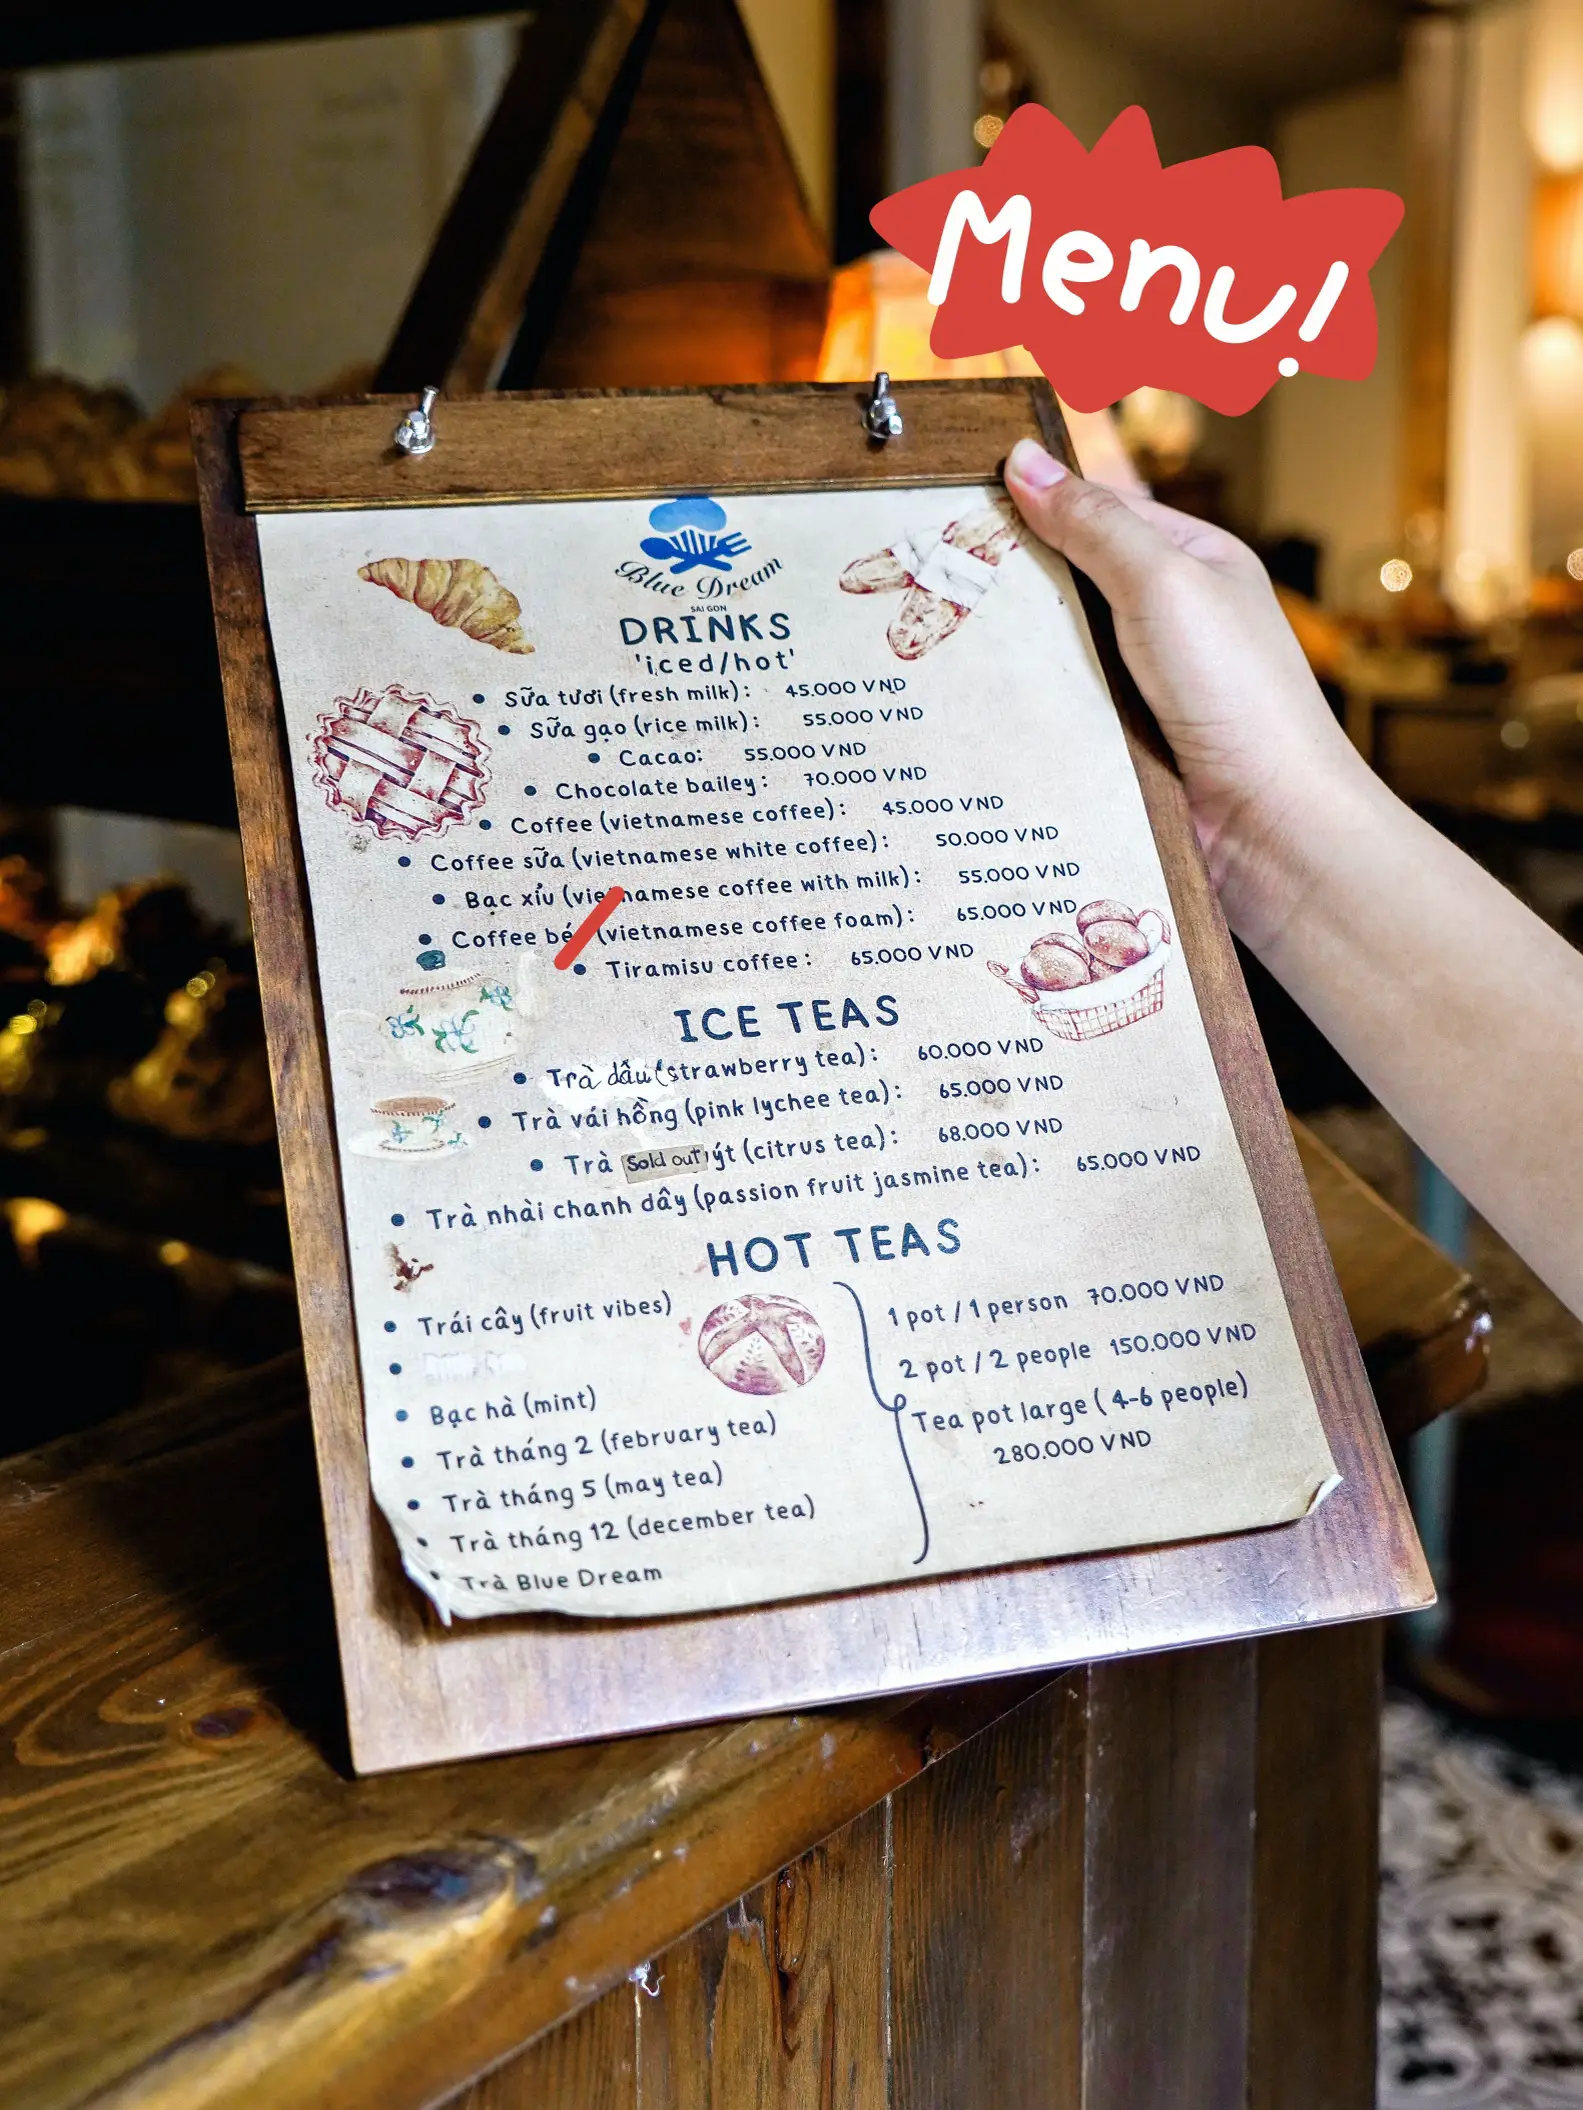 Menu!
Blue Dream
SAI GON
DRINKS
'iced/hot'
• Sữa tươi (fresh milk): 45.000 VND
• Sữa gạo (rice milk): 55.000 VND
• Cacao: 55.000 VND
• Chocolate bailey: 70.000 VND
• Coffee (vietnamese coffee): 45.000 VND
• Coffee sữa (vietnamese white coffee): 50.000 VND
• Bạc xỉu (vietnamese coffee with milk): 55.000 VND
• Coffee (vietnamese coffee foam): 65.000 VND
• Tiramisu coffee: 65.000 VND
ICE TEAS
• Trà dâu (strawberry tea): 60.000 VND
• Trà vải hồng (pink lychee tea): 65.000 VND
• Trà Sold out ýt (citrus tea): 68.000 VND
• Trà nhài chanh dây (passion fruit jasmine tea): 65.000 VND
HOT TEAS
• Trái cây (fruit vibes)
•
• Bạc hà (mint)
• Trà tháng 2 (february tea)
• Trà tháng 5 (may tea)
• Trà tháng 12 (december tea)
• Trà Blue Dream
1 pot / 1 person 70.000 VND
2 pot / 2 people 150.000 VND
Tea pot large ( 4-6 people)
280.000 VND